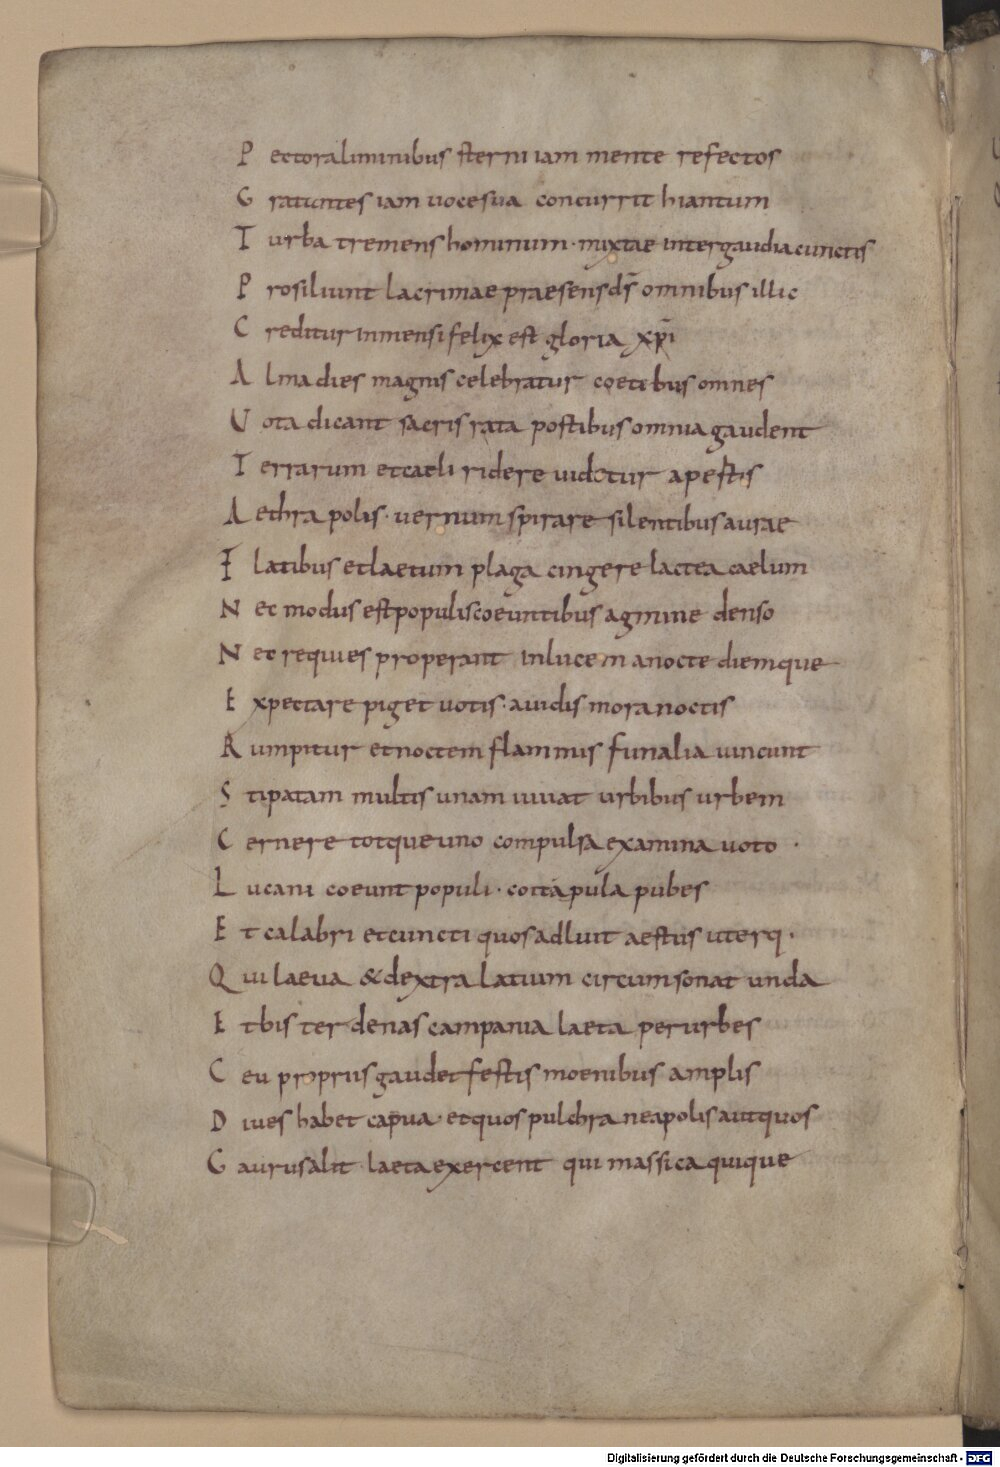 P ectoraliminibus sterni iam mente refectos
G ratantes iam uoce sua concurrit hiantum
T urba tremens hominum · mixtae inter gaudia cunctis
P rosiliunt lacrimae praesens ds̄ omnibus illic
C reditur inmensi felix est gloria xp̄i
A lma dies magnis celebratur coetibus omnes
U ota dicant sacris rata postibus omnia gaudent
T errarum et caeli ridere uidetur apestis
A ethra polis · uernum spirare silentibus aurae
F latibus et laetum plaga cingere lactea caelum
N ec modus est populis coeuntibus agmine denso
N ec requies properant in lucem a nocte diemque
E xpectare piget uotis · auidis mora noctis
R umpitur et noctem flammis funalia uincunt
S tipatam multis unam iuuat urbibus urbem
C ernere totque uno compulsa examina uoto ·
L ucani coeunt populi · coit apula pubes
E t calabri et cuncti quos adluit aestus uterq·
Q ui laeua & dextra latium circumsonat unda
E t bis ter denas campania laeta per urbes
C eu propriis gaudet festis moenibus amplis
D iues habet capua · et quos pulchra neapolis aut quos
G aurus alit laeta exercent qui massica quique
Digitalisierung gefördert durch die Deutsche Forschungsgemeinschaft - DFG